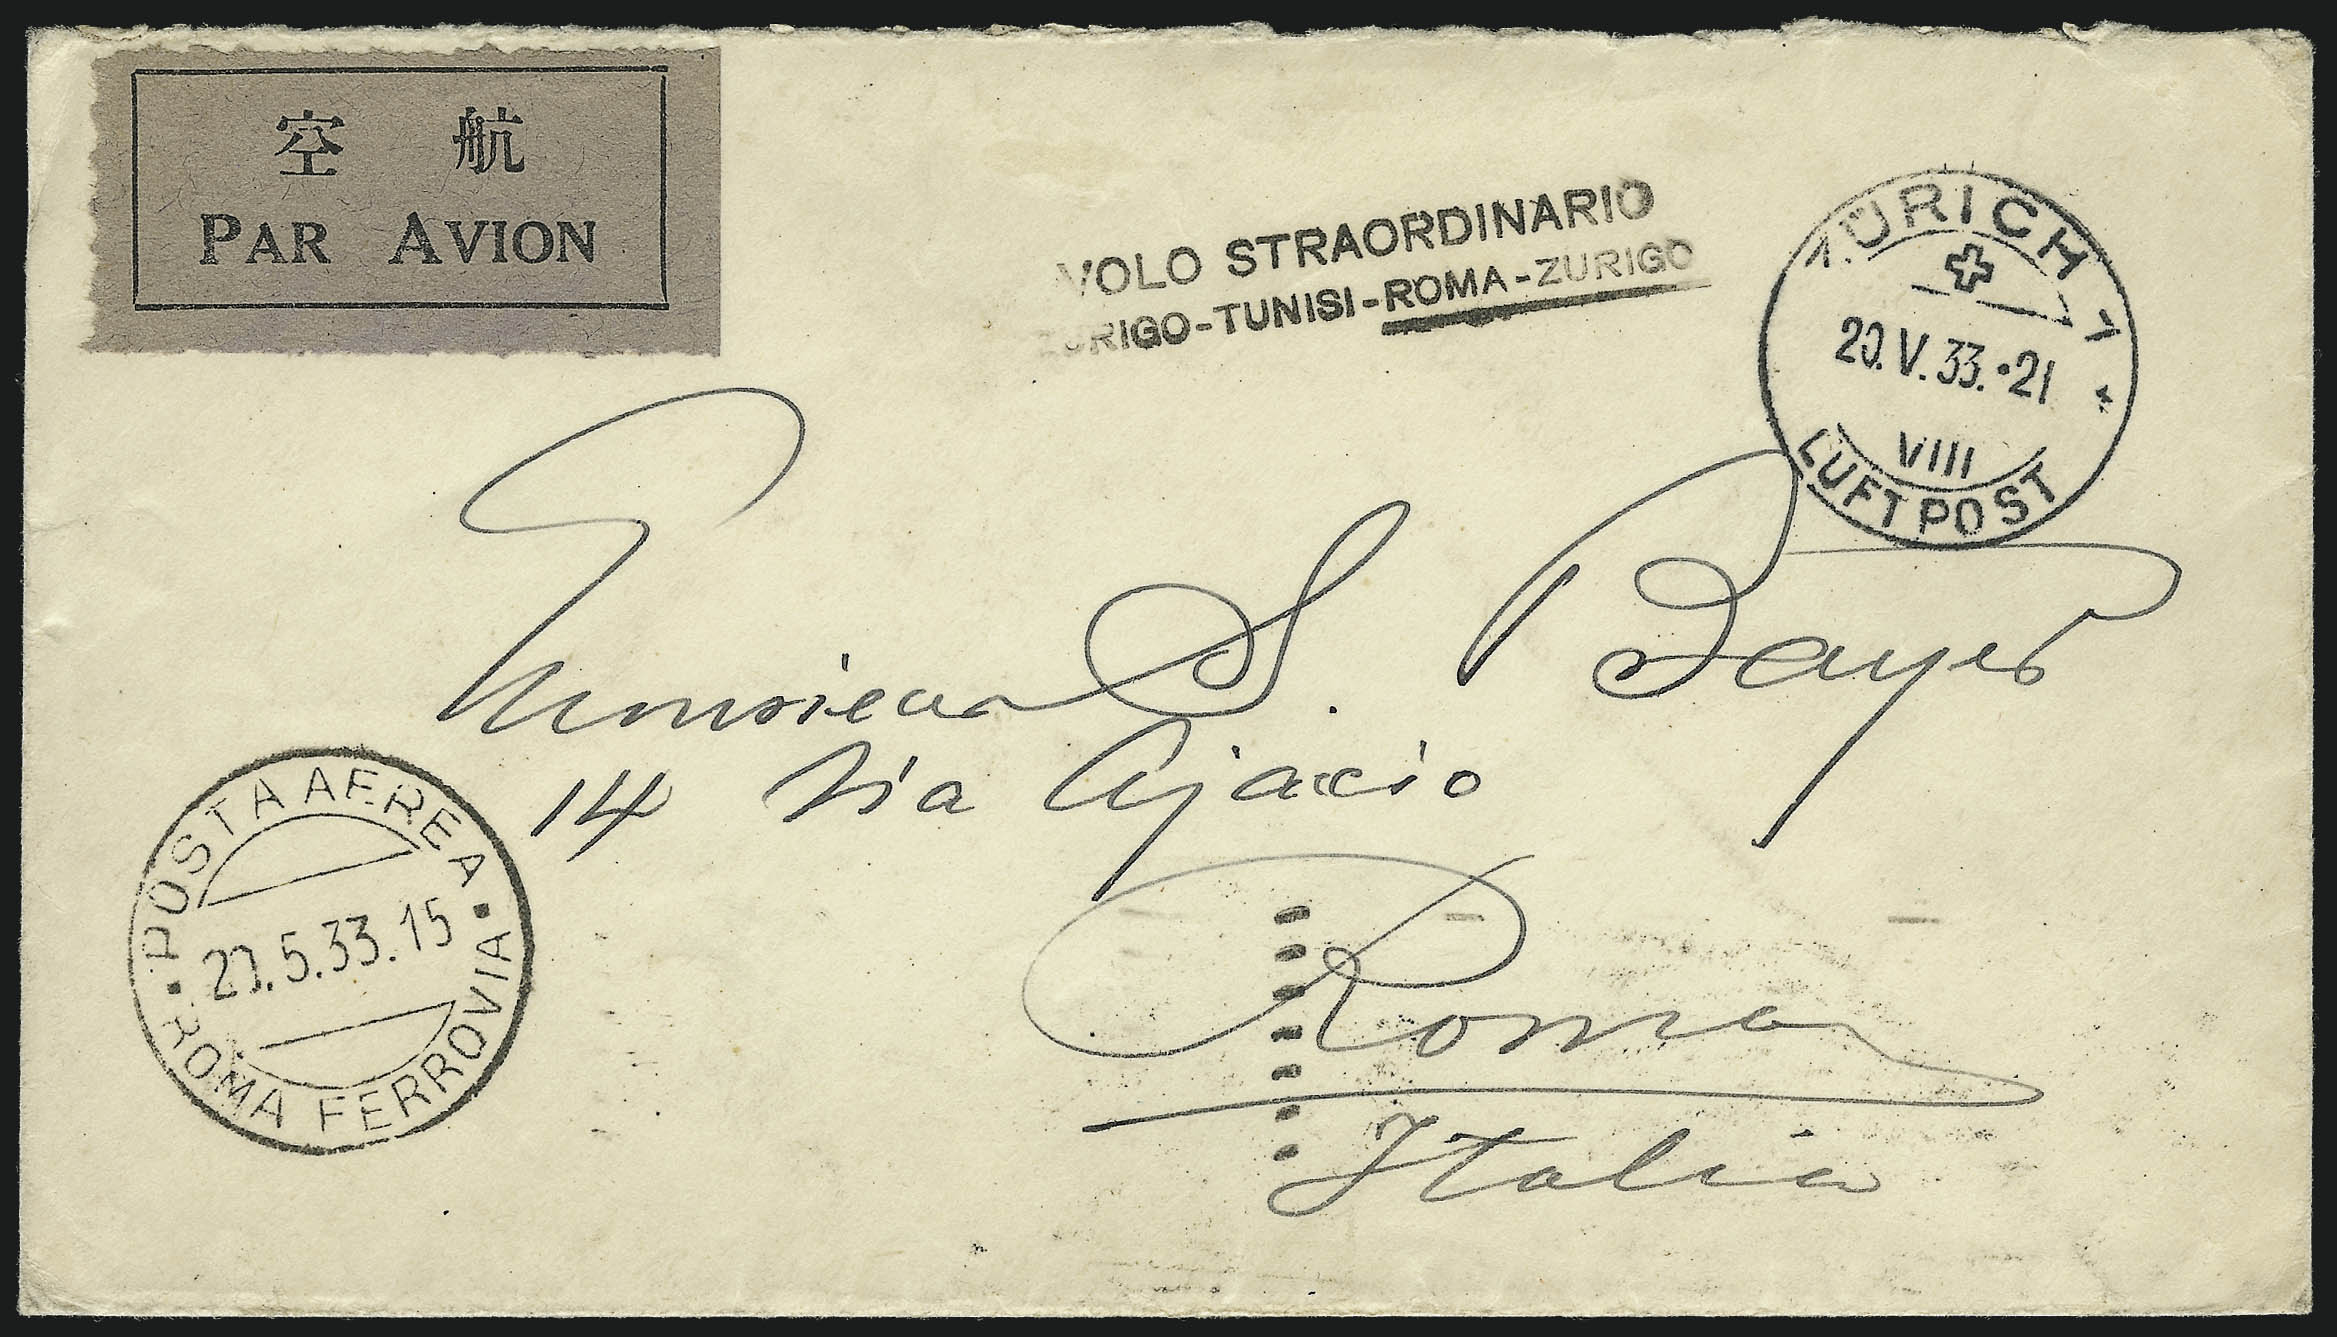 空 航
PAR AVION
VOLO STRAORDINARIO
ZURIGO-TUNISI-ROMA-ZURIGO
ZÜRICH 1
20.V.33.•21
VIII
LUFTPOST
Monsieur S. Bayer
14 Via Ajaccio
Roma
Italia
POSTA AEREA
20.5.33.15
ROMA FERROVIA